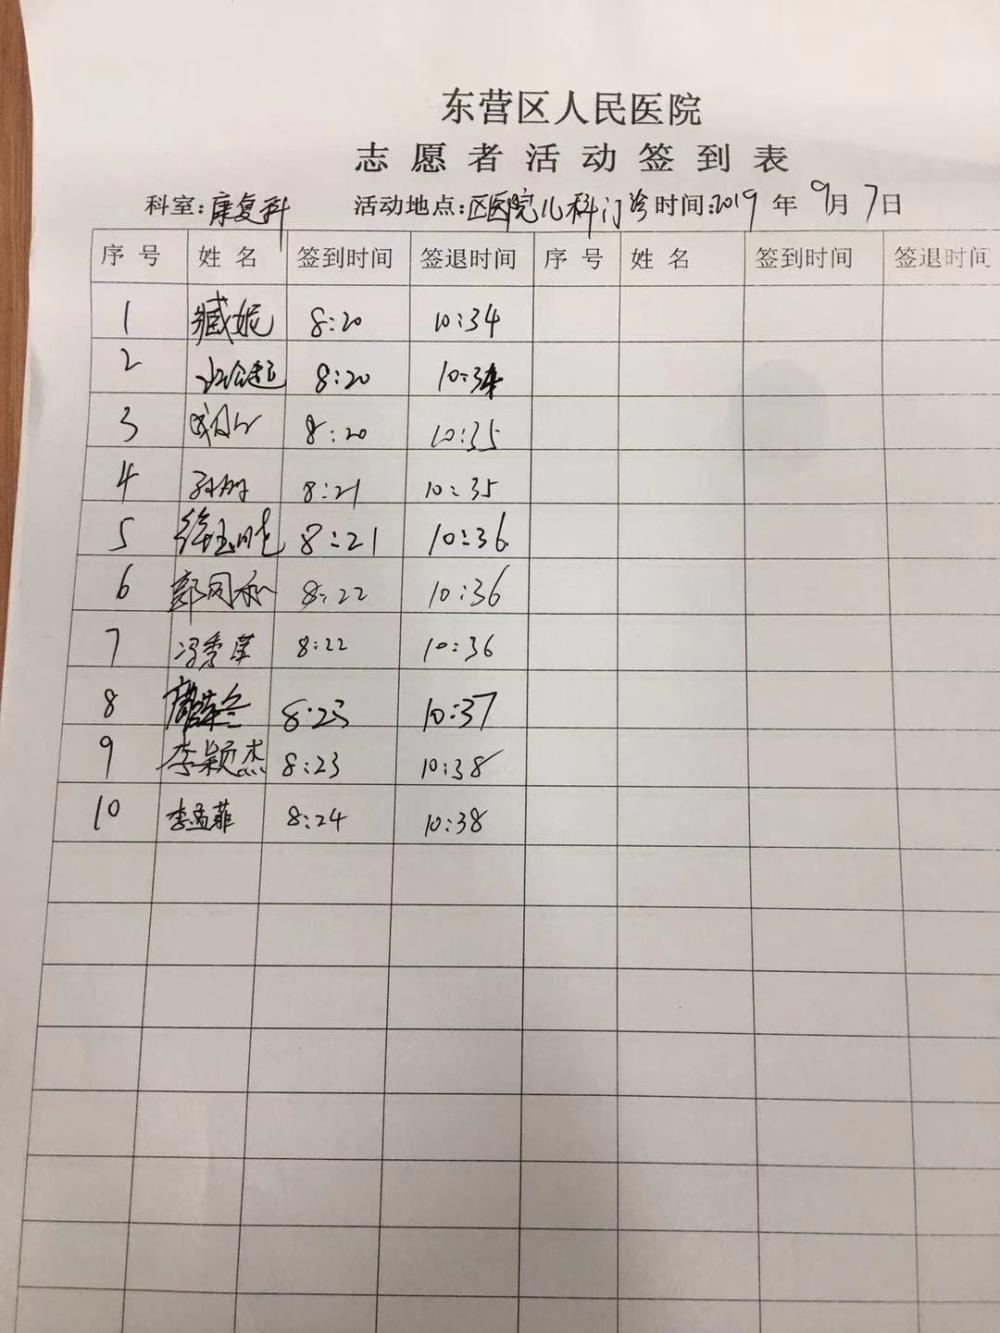 东营区人民医院
志愿者活动签到表
科室:康复科 活动地点:区医院儿科门诊 时间:2019年9月7日
序号 姓名 签到时间 签退时间 序号 姓名 签到时间 签退时间
1 臧妮 8:20 10:34
2 8:20 10:34
3 8:20 10:35
4 8:21 10:35
5 8:21 10:36
6 8:22 10:36
7 冯秀萍 8:22 10:36
8 8:23 10:37
9 李颖杰 8:23 10:38
10 李孟菲 8:24 10:38